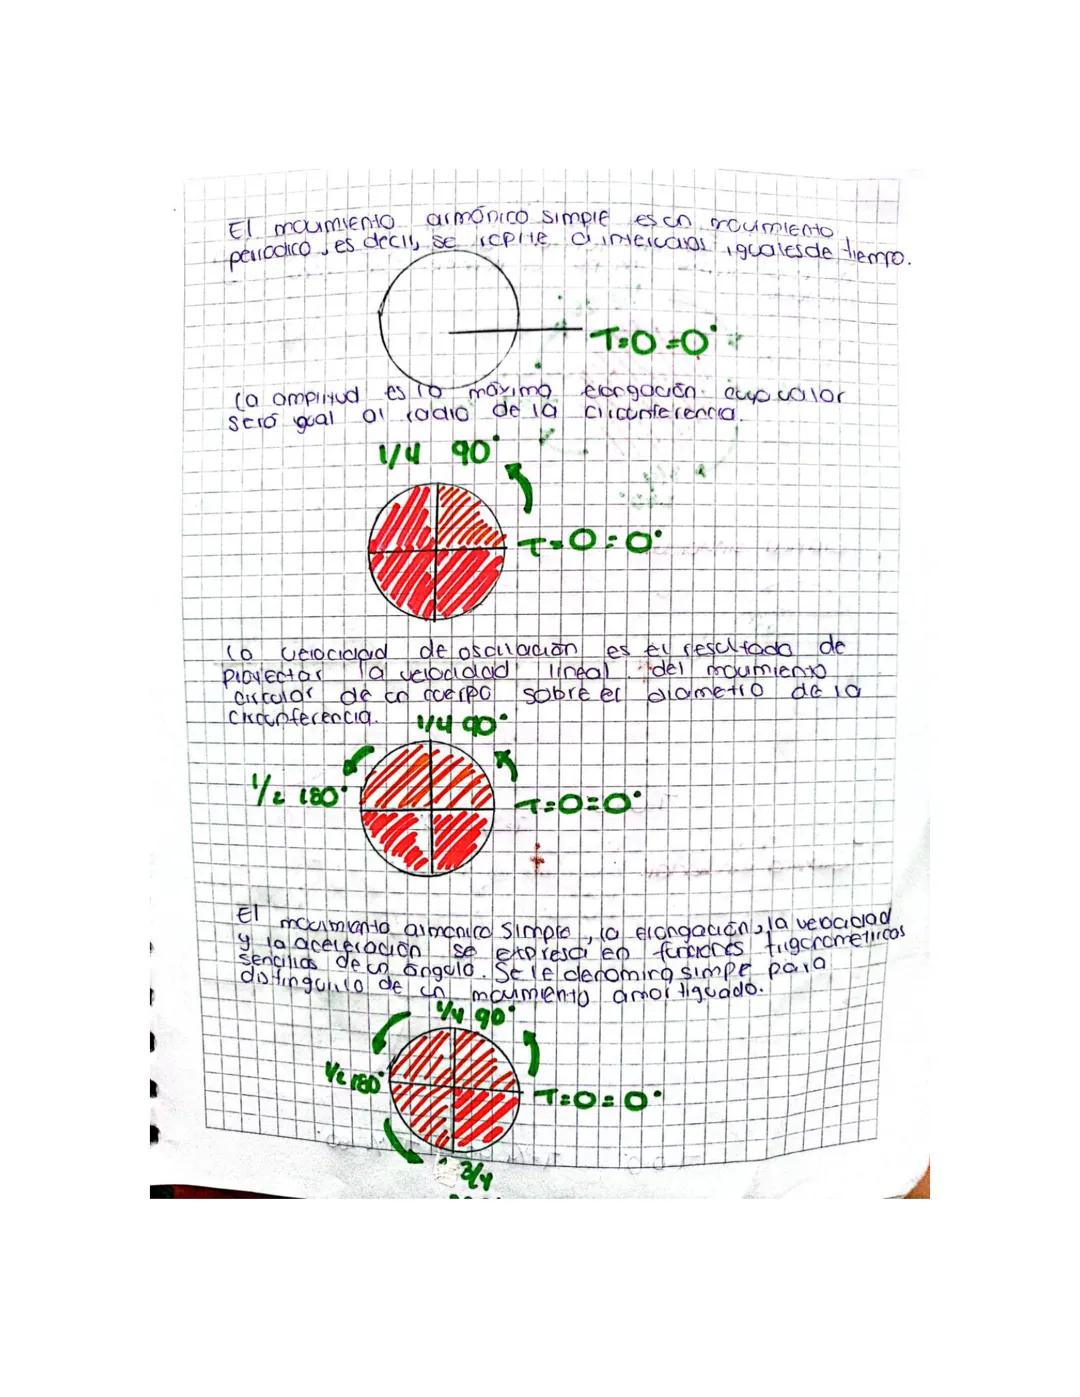 El movimiento armónico simple es un movimiento
periodico, es decir, se repite a intervalos iguales de tiempo.
T=0=0°
La amplitud es la máxima elongación cuyo valor
será igual al radio de la circunferencia.
1/4 90°
T=0=0°
La velocidad de oscilación es el resultado de
proyectar la velocidad lineal del movimiento
circular de un cuerpo sobre el diametro de la
circunferencia.
1/4 90°
1/2 180°
T=0=0°
El movimiento armonico simple, la elongación, la velocidad
y la aceleración se expresa en funciones trigonometricas
sencillas de un ángulo. Se le denomina simpe para
distinguirlo de un movimiento amortiguado.
1/4 90°
1/2 180°
T=0=0°
3/4